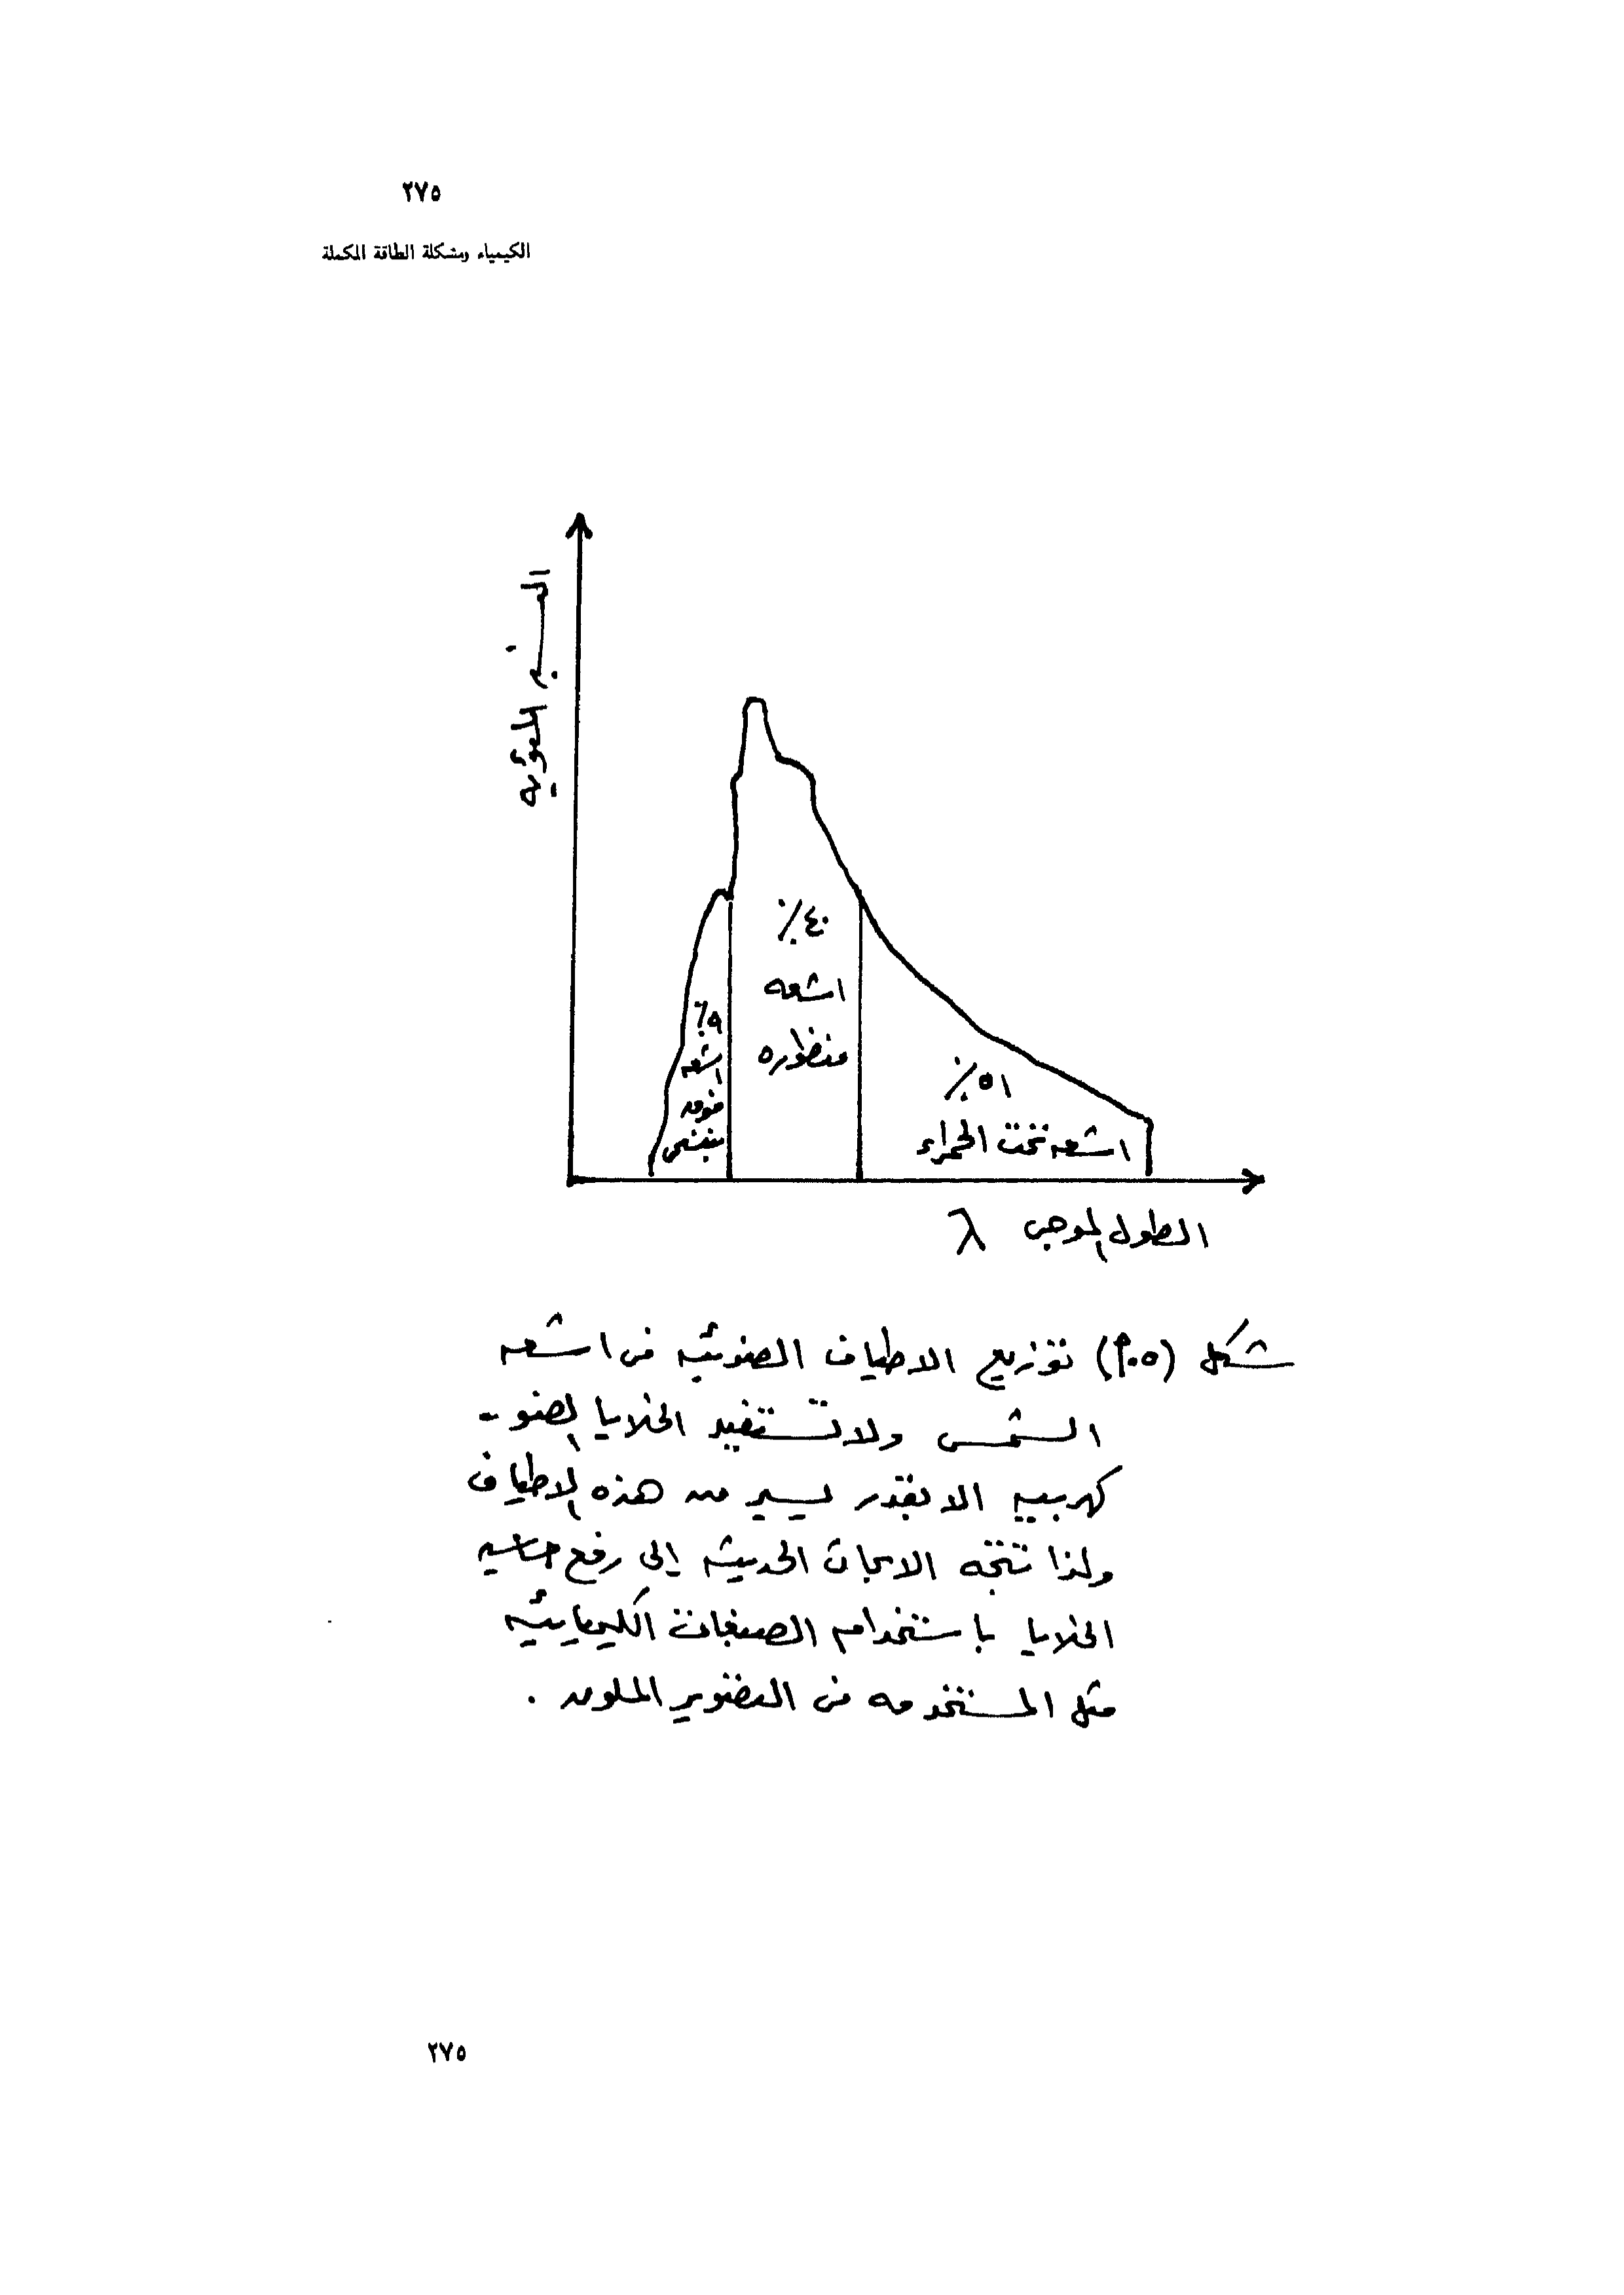 ٢٧٥
الكيمياء ومشكلة الطاقة المكملة
النسبه المئويه
٪٤٠
اشعه
منظوره
٪٩
اشعه
فوق
بنفسجى
٪٥١
اشعه تحت الحمراء
الطول الموجى λ
شكل توزيع الاطياف الضوئيه فى اشعه
الشمس ولا تستفيد الخلايا الضو -
كهربيه الا بقدر يسير من هذه الاطياف
ولذا تتجه الابحاث الحديثه إلى رفع حساسيه
الخلايا باستخدام الصبغات الكيميائيه
مثل المستخدمه فى التصوير الملون .
٢٧٥